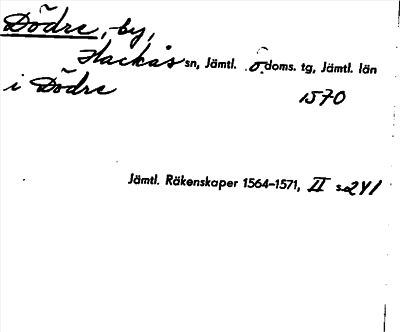 Dödre, by,
Hackås sn, Jämtl. ö. doms. tg, Jämtl. län
i Dödre 1570
Jämtl. Räkenskaper 1564-1571, II s. 241